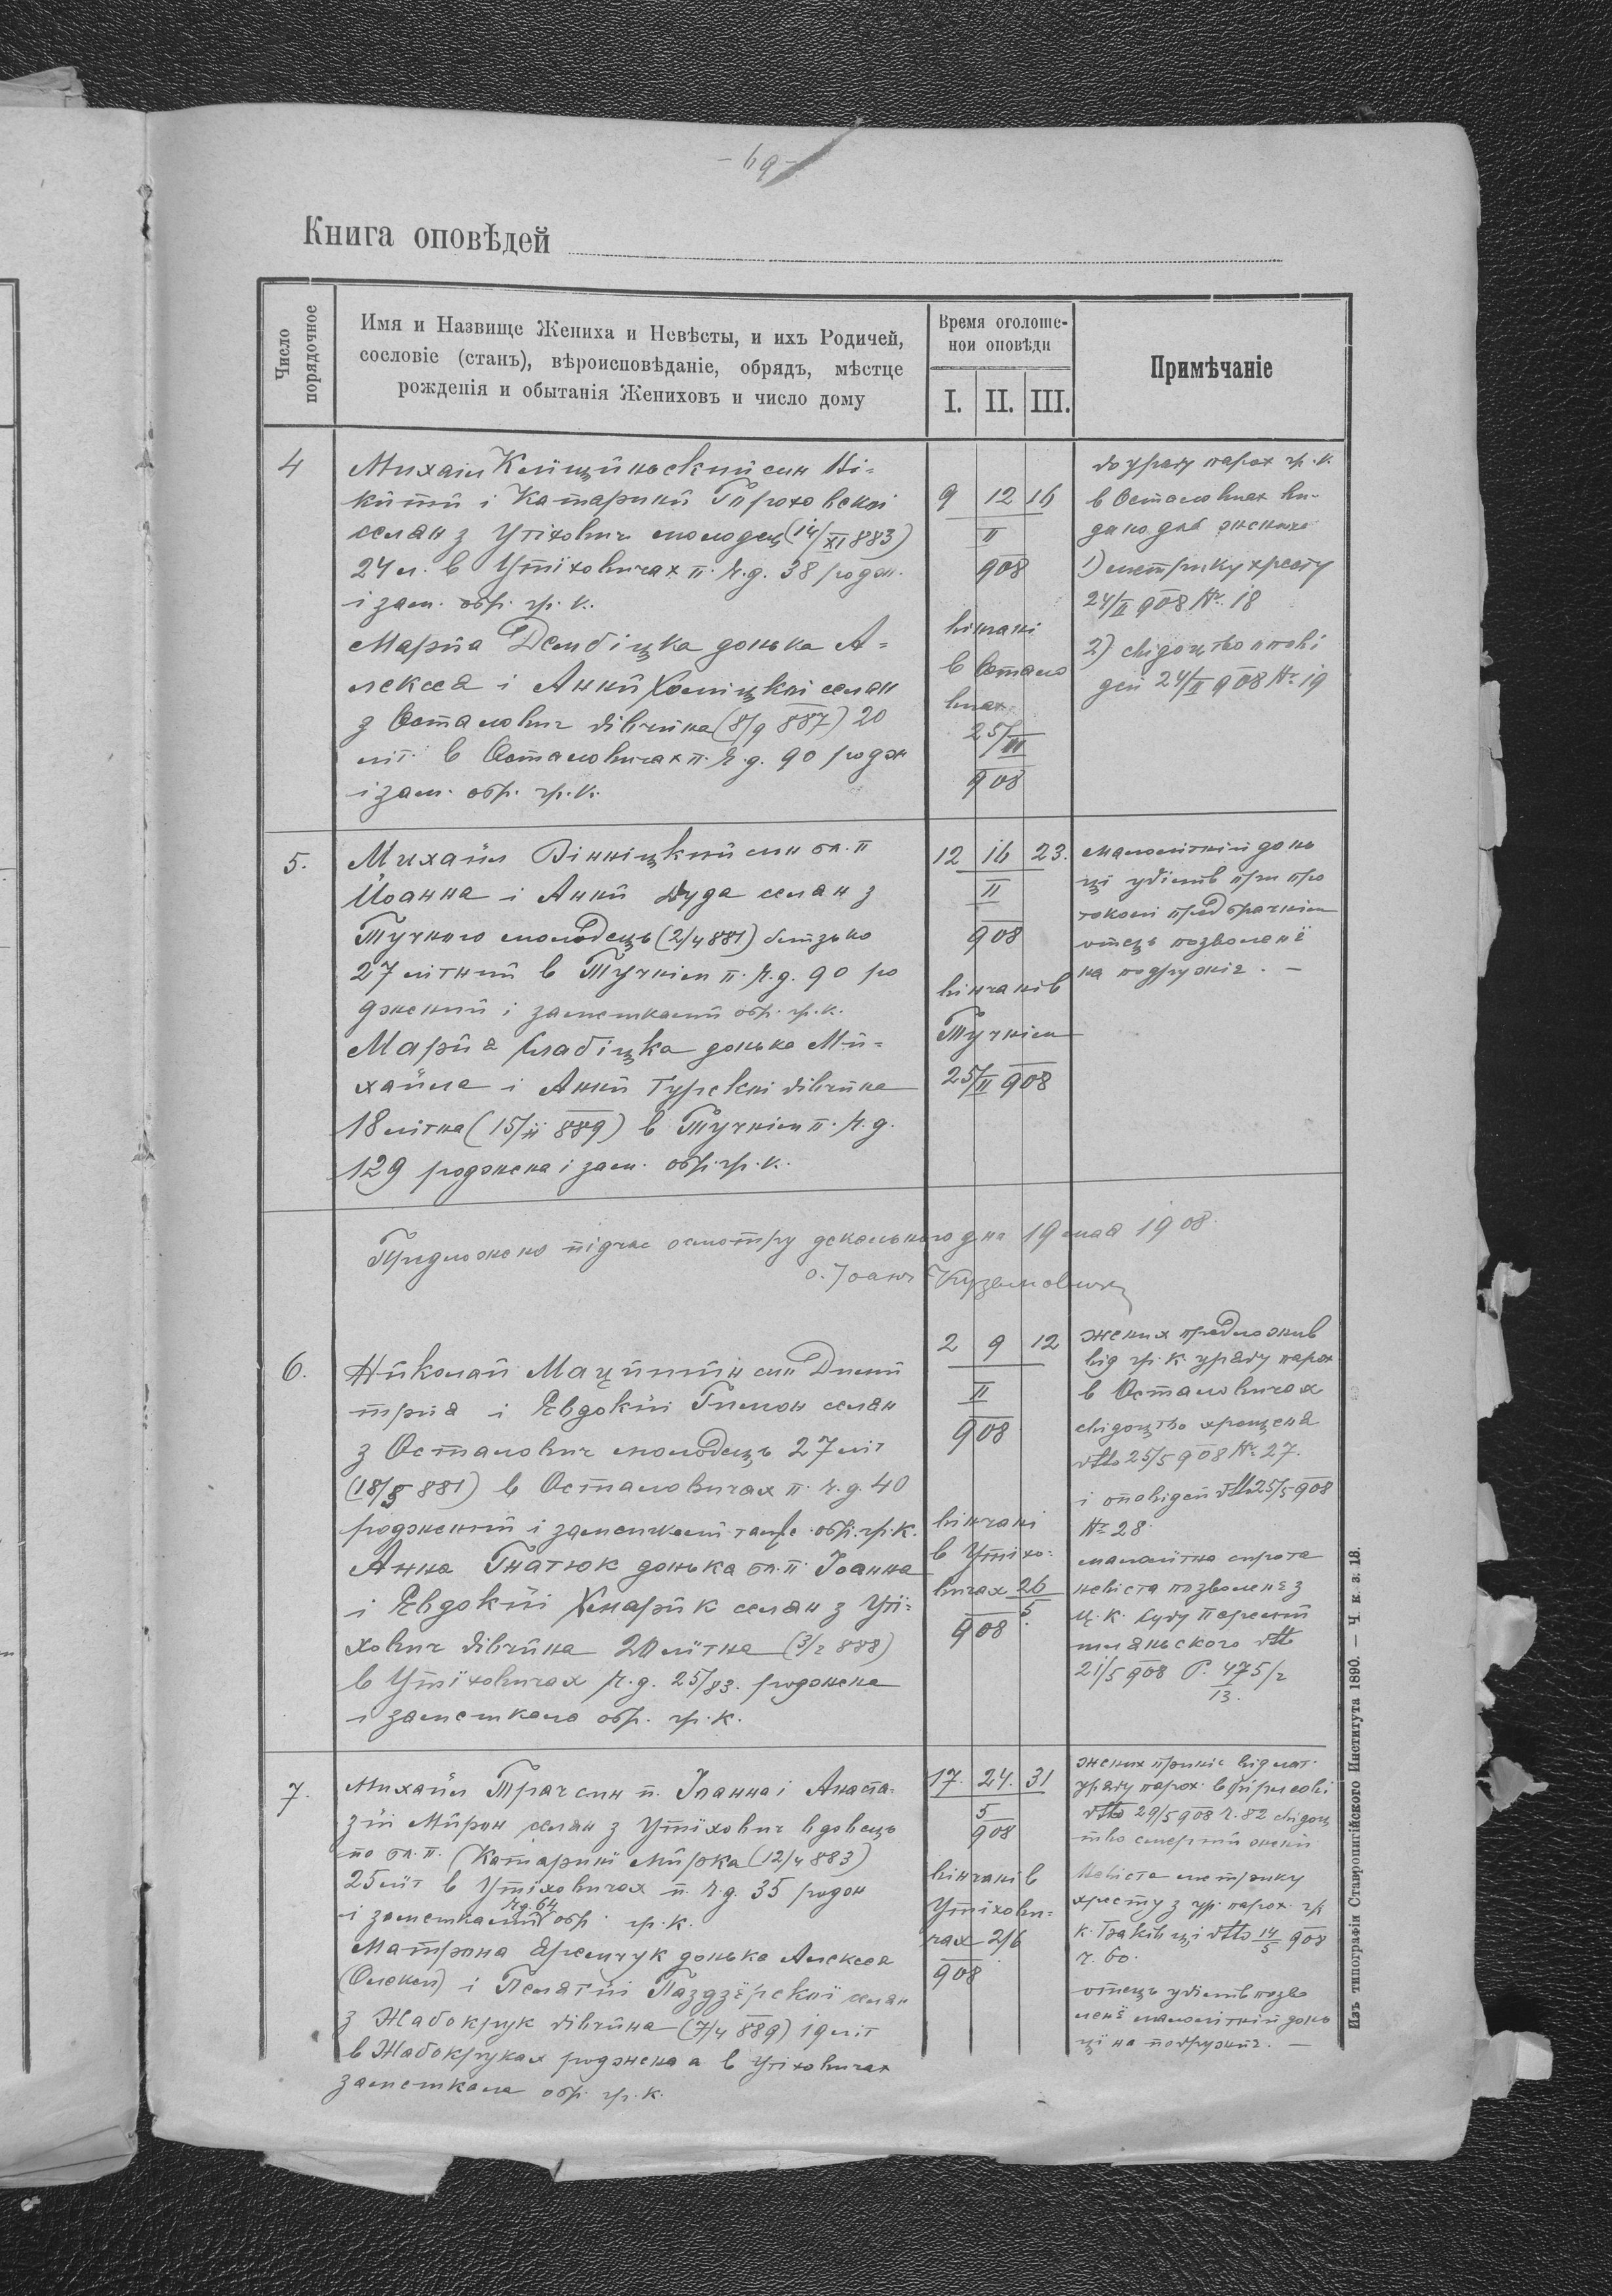 - 69 -
Книга оповѣдей
Число порядочное
Имя и Назвище Жениха и Невѣсты, и ихъ Родичей,
сословіе (станъ), вѣроисповѣданіе, обрядъ, мѣстце
рожденія и обытанія Жениховъ и число дому
Время оголоше-
нои оповѣди
I. II. III.
Примѣчаніе
4
Михаил син Ні-
кити і Катарини
селян з Утіхович молодец (14/XI 883)
24 л. в Утїховичах п. ч. д. 38 родж.
і зам. обр. гр. к.
Марія Дембіцка донька А-
лексея і Анни селян
з Осталович дівчина (8/9 887) 20
літ в Осталовичах п. ч. д. 90 родж
і зам. обр. гр. к.
9 12 16
II
908
вінчані
в Остало
вичах
25/II
908
до уряду парох гр. к.
в Осталовичах ви-
дано для жениха
1) метрику хресту
24/II 908 Nr. 18
2) свідоцтво опові
дей 24/II 908 Nr. 19
5.
Михайл Вінніцкий син бл. п
Йоанна і Анни Дуда селян з
Тучного молодець (2/4 881) близько
27 літний в Тучнім п. ч. д. 90 ро
джений і замешкалий обр. гр. к.
Марія Слабіцка донька Ми-
хайла і Анни Гурскої дівчина
18 літна (15/II 889) в Тучнім п. ч. д.
129 роджена і зам. обр. гр. к.
12 16 23.
II
908
вінчані в
Тучнім
25/II 908
малолітній донь
ці уділив при про
токолі предбрачнім
отець позволенє
на подружіє. —
Предложено підчас осмотру декального дня 19 мая 1908.
о. Іоанн Кузьмович
6.
Николай син Дими
трия і Евдокиї селян
з Осталович молодець 27 літ
(18/5 881) в Осталовичах п. ч. д. 40
роджений і замешкалий обр. гр. к.
Анна Гнатюк донька бл. п. Іоанна
і Евдокиї Хмарик селян з Утї-
хович дівчина 20 літна (3/2 888)
в Утїховичах ч. д. 25/83. роджена
і замешкала обр. гр. к.
2 9 12
II
908
вінчані
в Утїхо-
вичах 26
5.
908
жених предложив
від гр. к. уряду парох
в Осталовичах
свідоцтво хрещеня
dtto 25/5 908 Nr. 27.
і оповідей dtto 25/5 908
Nr. 28.
малолїтна сирота
невіста позволенє з
ц. к. суду Перемиш
ляньского dtto
21/5 908 P. 475/2
13.
7.
Михайл Трач син п. Іоанна і Анаста-
зиї Мирон селян з Утїхович вдовець
по бл. п. Катарині (12/4 883)
25 лїт в Утїховичах п. ч. д. 35 родж
чд. 64
і замешкалий обр. гр. к.
Матрона Яремчук донька Алексея
(Олекси) і Пелагиї селян
з Жабокрук дівчина (7/4 889) 19 літ
в Жабокруках роджена а в Утїховичах
замешкала обр. гр. к.
17. 24. 31
5
908
вінчані в
Утїхови-
чах 2/6
908
уряду парох. в
dtto 29/5 908 ч. 82 свідоц
тво смерти жени
Невіста метрику
хресту з ур. парох. гр
к. dtto 14/5 908
ч. 60.
отець уділив позво
ленє малолітній донь
ці на подружиє. —
Изъ типографіи Ставропигійского Института 1890. — Ч. к. з. 18.